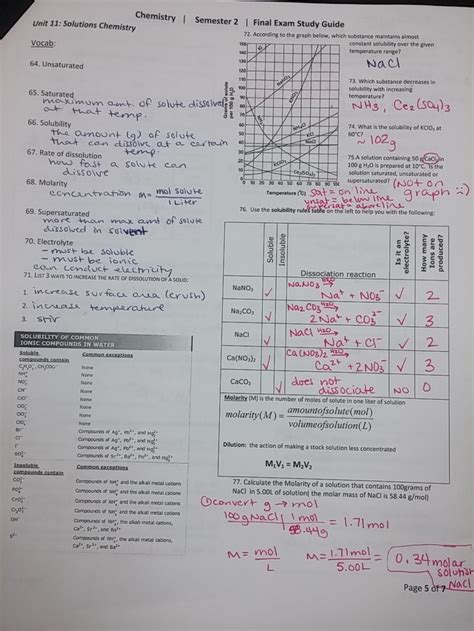 Chemistry | Semester 2 | Final Exam Study Guide
Unit 11: Solutions Chemistry
Vocab:
64. Unsaturated
65. Saturated
maximum amt. of solute dissolved
at that temp.
66. Solubility
the amount (g) of solute
that can dissolve at a certain
temp.
67. Rate of dissolution
how fast a solute can
dissolve
68. Molarity
concentration M= mol solute
1 Liter
69. Supersaturated
more than max amt of solute
dissolved in solvent
70. Electrolyte
- must be soluble
- must be ionic
can conduct electricity
71. List 3 WAYS TO INCREASE THE RATE OF DISSOLUTION OF A SOLID:
1. increase surface area (crush)
2. increase temperature
3. stir
SOLUBILITY OF COMMON
IONIC COMPOUNDS IN WATER
Soluble compounds contain
Common exceptions
None
None
None
None
None
None
Compounds of Ag⁺, Pb²⁺, and Hg₂²⁺
Compounds of Ag⁺, Pb²⁺, and Hg₂²⁺
Compounds of Ag⁺, Pb²⁺, and Hg₂²⁺
Insoluble compounds contain
Common exceptions
Compounds of NH₄⁺ and the alkali metal cations
Compounds of NH₄⁺ and the alkali metal cations
Compounds of NH₄⁺ and the alkali metal cations
Compounds of NH₄⁺, the alkali metal cations,
Ca²⁺, Sr²⁺, and Ba²⁺
S²⁻
Compounds of NH₄⁺, the alkali metal cations,
Ca²⁺, Sr²⁺, and Ba²⁺
72. According to the graph below, which substance maintains almost
constant solubility over the given
temperature range?
NaCl
73. Which substance decreases
in solubility with increasing
temperature?
NH₃, Ce₂(SO₄)₃
74. What is the solubility of KClO₃ at
~ 102g
75.A solution containing 50 g CaCl₂ in
100 g H₂O is prepared at 10°C. Is the
solution saturated, unsaturated or
supersaturated?
(Not on
graph :)
Grams of solute
per 100 g H₂O
Temperature (°C)
sat = on line
unsat = below line
76. Use the solubility rules table on the left to help you with the following:
Soluble
Insoluble
Dissociation reaction
Is it an electrolyte?
How many Ions are produced?
NaNO₃ ✓ NaNO₃ H₂O → Na⁺ + NO₃⁻ ✓ 2
Na₂CO₃ ✓ Na₂CO₃ H₂O → 2Na⁺ + CO₃²⁻ ✓ 3
NaCl ✓ NaCl H₂O → Na⁺ + Cl⁻ ✓ 2
Ca(NO₃)₂ ✓ Ca(NO₃)₂ H₂O → Ca²⁺ + 2NO₃⁻ ✓ 3
CaCO₃ ✓ does not dissociate NO 0
Molarity (M) is the number of moles of solute in one liter of solution
molarity(M) = amountofsolute(mol)
volumeofsolution(L)
Dilution: the action of making a stock solution less concentrated
M₁V₁ = M₂V₂
77. Calculate the Molarity of a solution that contains 100grams of
NaCl in 5.00L of solution (the molar mass of NaCl is 58.44 g/mol)
① convert g → mol
100g NaCl | 1 mol = 1.71 mol
58.44g
M = mol
L
M = 1.71 mol
5.00L
= 0.34 molar
solution
NaCl
Page 5 of 7